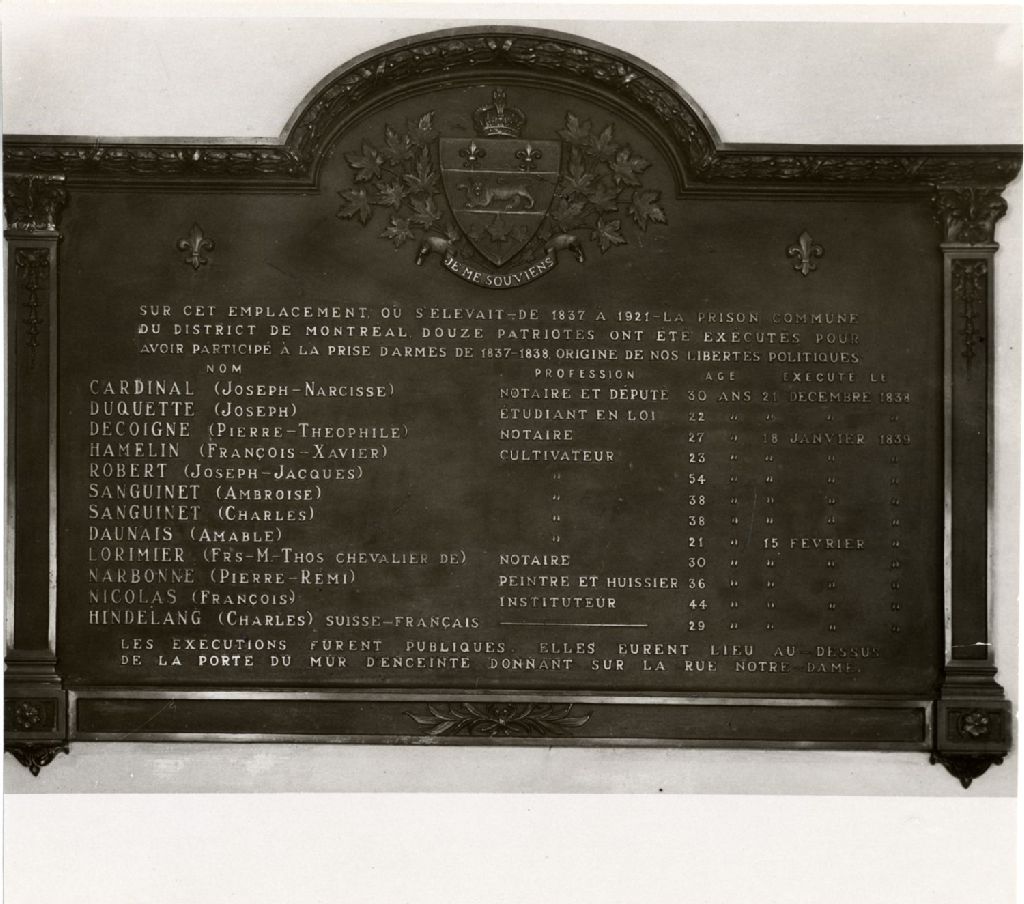 JE ME SOUVIENS
SUR CET EMPLACEMENT, OÙ S'ELEVAIT-DE 1837 A 1921-LA PRISON COMMUNE
DU DISTRICT DE MONTREAL, DOUZE PATRIOTES ONT ETE EXECUTES POUR
AVOIR PARTICIPÉ À LA PRISE D'ARMES DE 1837-1838, ORIGINE DE NOS LIBERTES POLITIQUES.
NOM PROFESSION AGE EXECUTE LE
CARDINAL (JOSEPH-NARCISSE) NOTAIRE ET DÉPUTÉ 30 ANS 21 DECEMBRE 1838
DUQUETTE (JOSEPH) ÉTUDIANT EN LOI 22 " " " "
DECOIGNE (PIERRE-THEOPHILE) NOTAIRE 27 " 18 JANVIER 1839
HAMELIN (FRANÇOIS-XAVIER) CULTIVATEUR 23 " " " "
ROBERT (JOSEPH-JACQUES) " 54 " " " "
SANGUINET (AMBROISE) " 38 " " " "
SANGUINET (CHARLES) " 38 " " " "
DAUNAIS (AMABLE) " 21 " 15 FEVRIER "
LORIMIER (FRS-M-THOS CHEVALIER DE) NOTAIRE 30 " " " "
NARBONNE (PIERRE-REMI) PEINTRE ET HUISSIER 36 " " " "
NICOLAS (FRANÇOIS) INSTITUTEUR 44 " " " "
HINDELANG (CHARLES) SUISSE-FRANÇAIS 29 " " " "
LES EXECUTIONS FURENT PUBLIQUES. ELLES EURENT LIEU AU-DESSUS
DE LA PORTE DU MUR D'ENCEINTE DONNANT SUR LA RUE NOTRE-DAME.